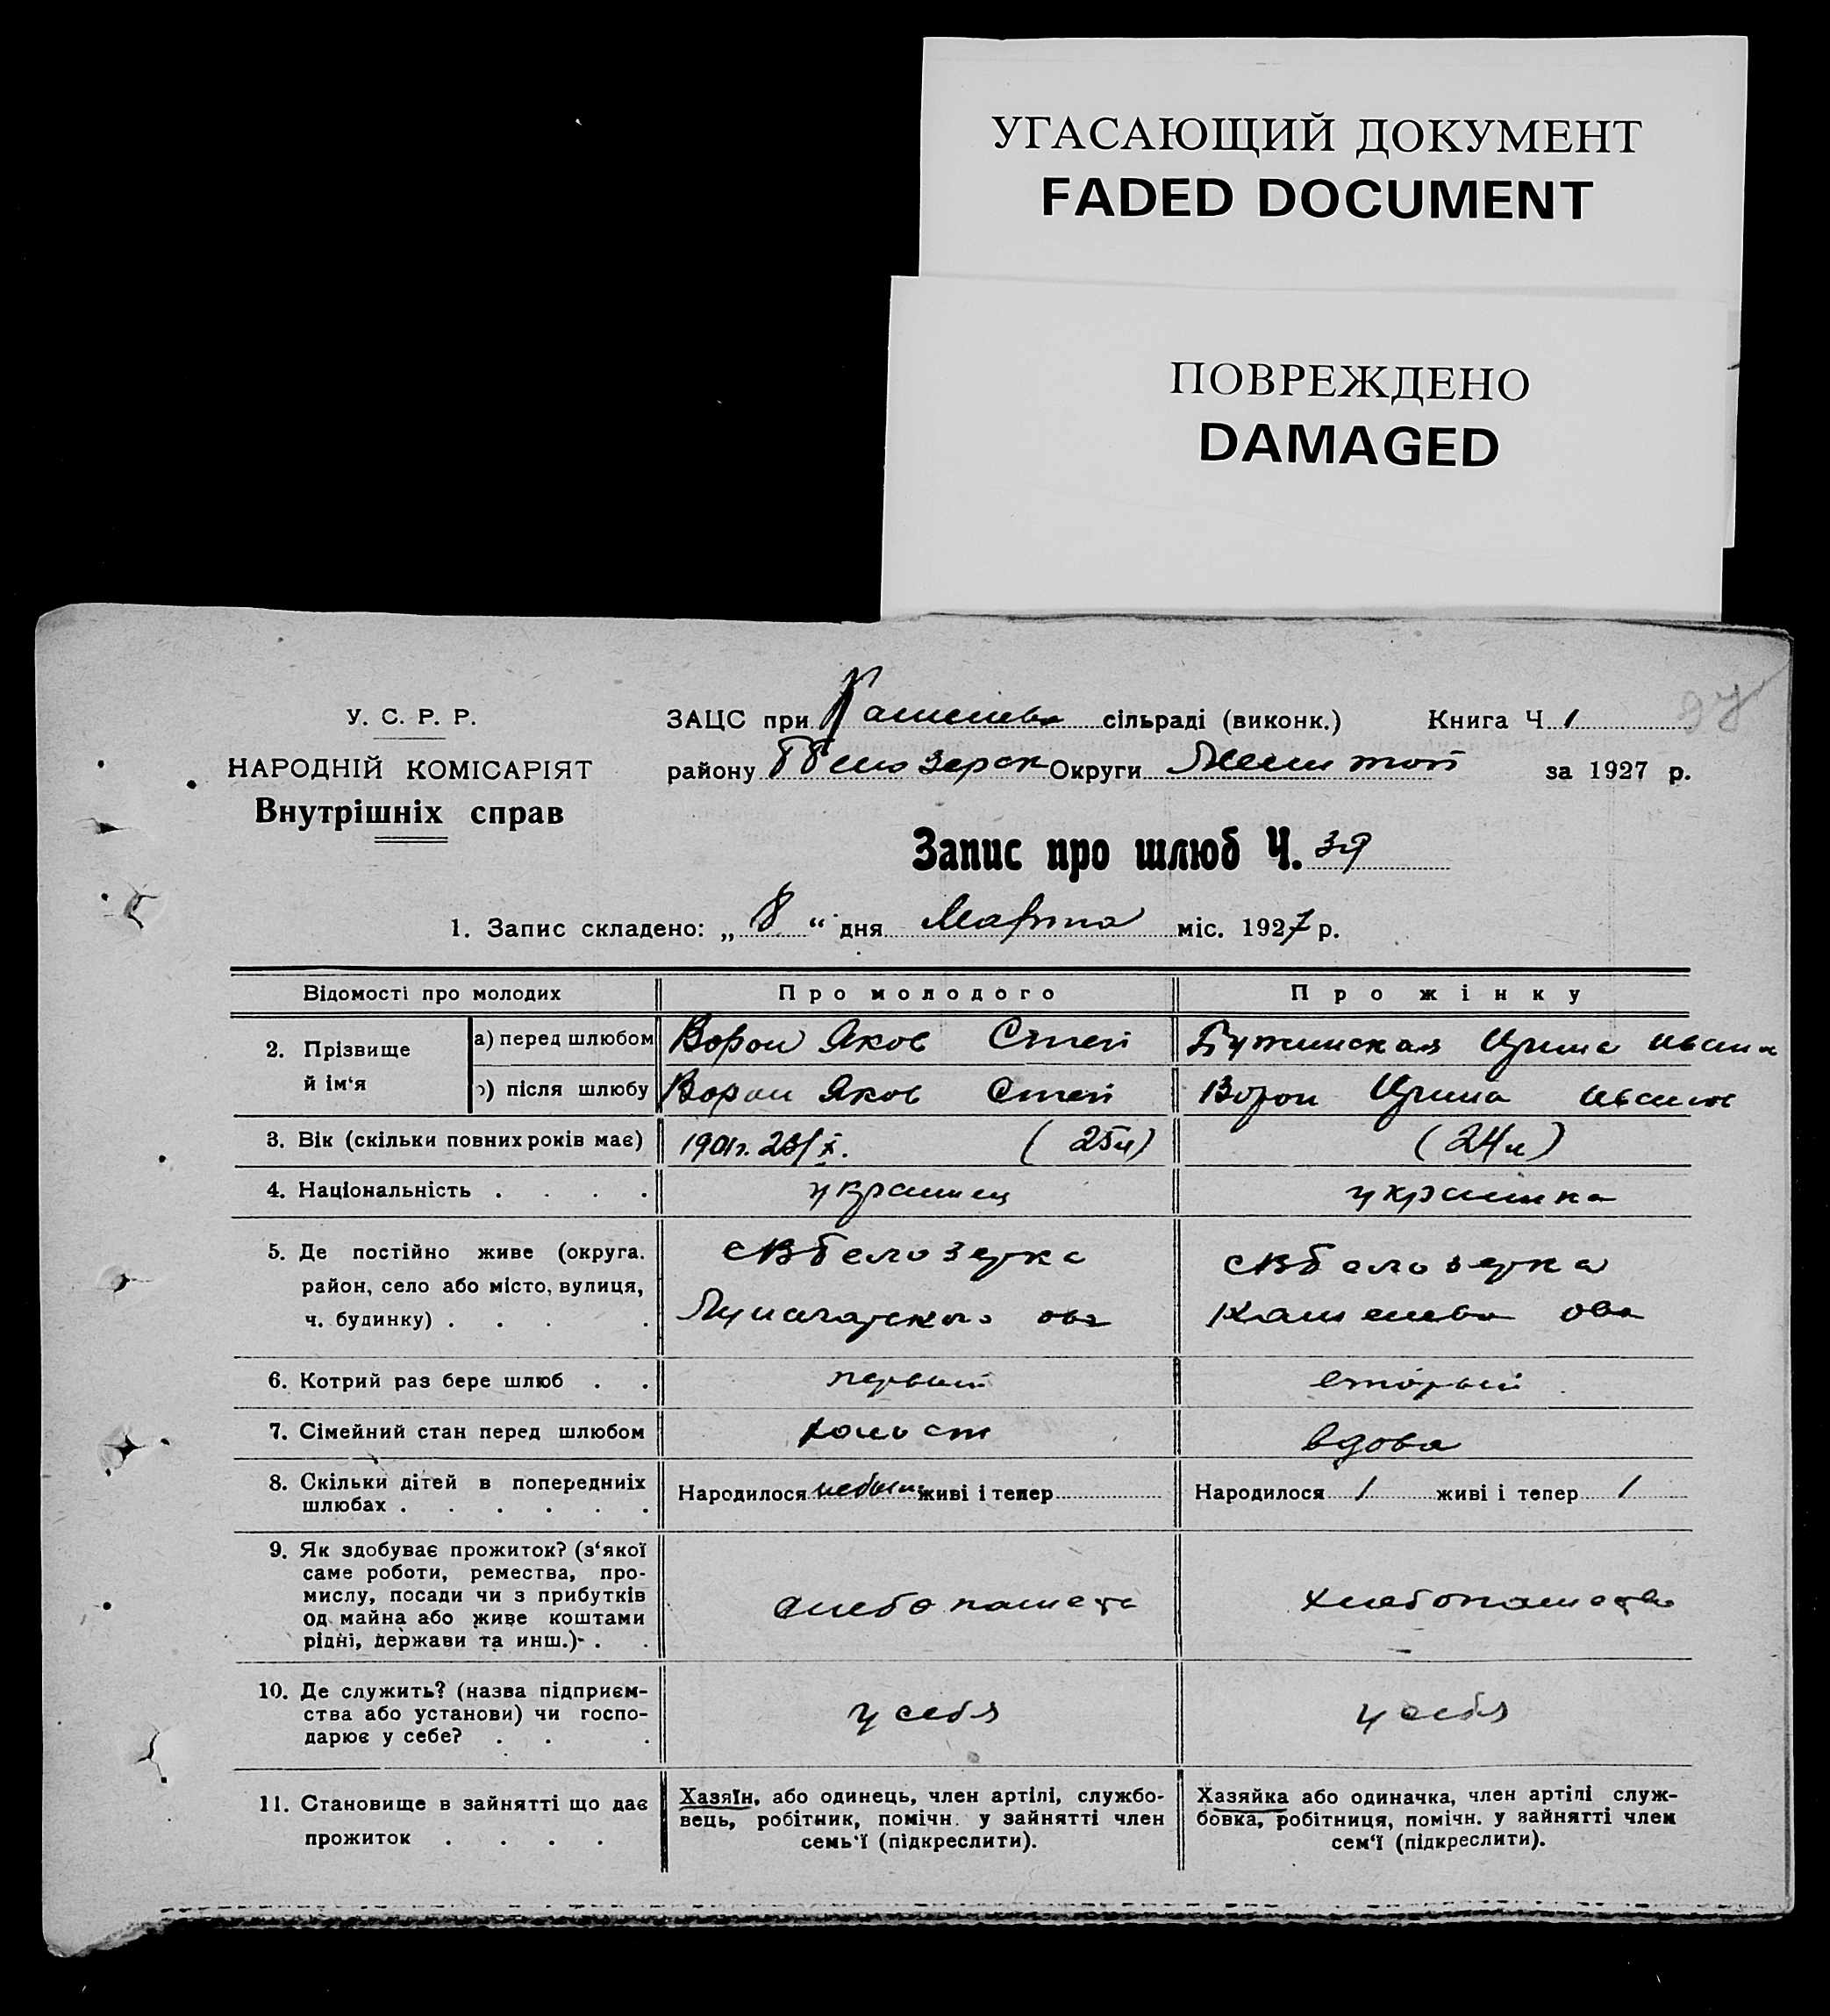 УГАСАЮЩИЙ ДОКУМЕНТ
FADED DOCUMENT
ПОВРЕЖДЕНО
DAMAGED
97
У. С. Р. Р.
НАРОДНІЙ КОМІСАРІЯТ
Внутрішніх справ
ЗАЦС при сільраді (виконк.) Книга Ч 1
району Белозерск Округи Мелитоп за 1927 р.
Запис про шлюб Ч. 39
1. Запис складено: „ 8 “ дня Марта міс. 1927 р.
Відомості про молодих Про молодого Про жінку
2. Прізвище й ім‘я
а) перед шлюбом Ворон Яков Степ Бужинская Ирина Иван
б) після шлюбу Ворон Яков Степ Ворон Ирина Иванов
3. Вік (скільки повних років має) 1901г. 23/X. (25л) (24л)
4. Національність . . . . украинец украинка
5. Де постійно живе (округа. район, село або місто, вулиця, ч. будинку) . . . .
с Вбелозерка
Луначарского ова
с Вбелозерка
Камешева ова
6. Котрий раз бере шлюб . . первый вторый
7. Сімейний стан перед шлюбом холост вдова
8. Скільки дітей в попередниіх шлюбах . . . . . .
Народилося небыло живі і тепер
Народилося 1 живі і тепер 1
9. Як здобуває прожиток? (з‘якої
саме роботи, ремества, про-
мислу, посади чи з прибутків
од майна або живе коштами
рідні, держави та инш.)- . .
хлебопашест
хлебопашество
10. Де служить? (назва підприєм-
ства або установи) чи госпо-
дарює у себе? . . .
у себя
у себя
11. Становище в зайнятті що дає
прожиток . . . .
Хазяїн, або одинець, член артілі, службо-
вець, робітник, помічн. у зайнятті член
семь‘ї (підкреслити).
Хазяйка або одиначка, член артілі служ-
бовка, робітниця, помічн. у зайнятті член
сем‘ї (підкреслити).